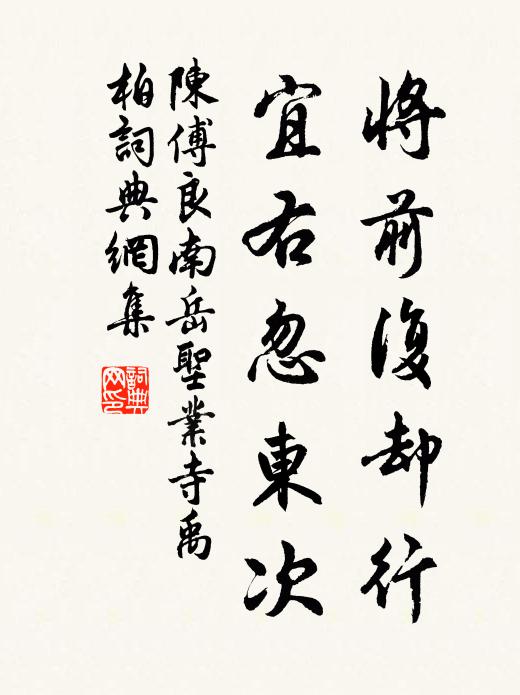 將前復却行
宜右忽東次
陳傅良南岳聖業寺禹
柏詞典網集
詞典网印